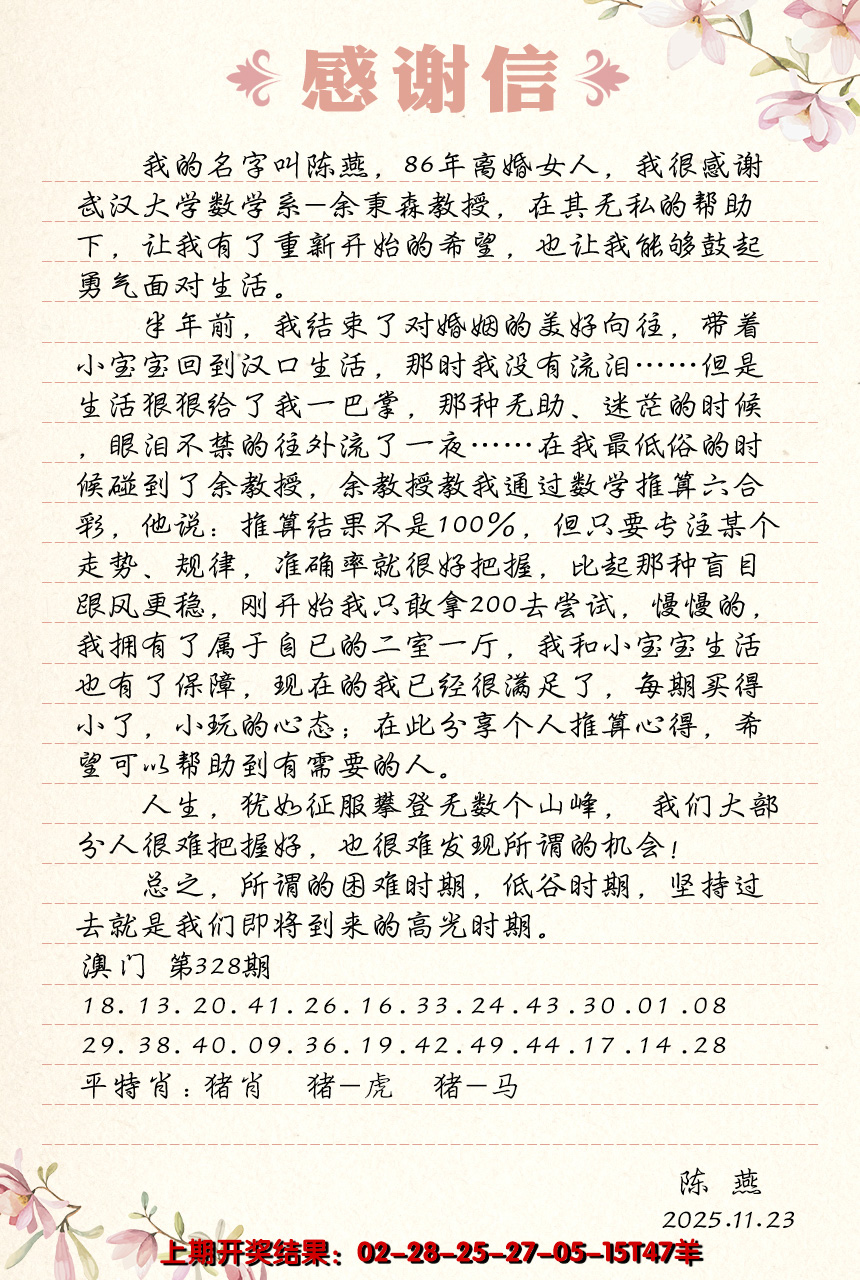 感谢信
我的名字叫陈燕，86年离婚女人，我很感谢
武汉大学数学系—余秉森教授，在其无私的帮助
下，让我有了重新开始的希望，也让我能够鼓起
勇气面对生活。
半年前，我结束了对婚姻的美好向往，带着
小宝宝回到汉口生活，那时我没有流泪……但是
生活狠狠给了我一巴掌，那种无助、迷茫的时候
，眼泪不禁的往外流了一夜……在我最低俗的时
候碰到了余教授，余教授教我通过数学推算六合
彩，他说：推算结果不是100%，但只要专注某个
走势、规律，准确率就很好把握，比起那种盲目
跟风更稳，刚开始我只敢拿200去尝试，慢慢的，
我拥有了属于自已的二室一厅，我和小宝宝生活
也有了保障，现在的我已经很满足了，每期买得
小了，小玩的心态；在此分享个人推算心得，希
望可以帮助到有需要的人。
人生，犹如征服攀登无数个山峰， 我们大部
分人很难把握好，也很难发现所谓的机会！
总之，所谓的困难时期，低谷时期，坚持过
去就是我们即将到来的高光时期。
澳门 第328期
18.13.20.41.26.16.33.24.43.30.01.08
29.38.40.09.36.19.42.49.44.17.14.28
平特肖：猪肖 猪—虎 猪—马
陈 燕
2025.11.23
上期开奖结果：02-28-25-27-05-15T47羊